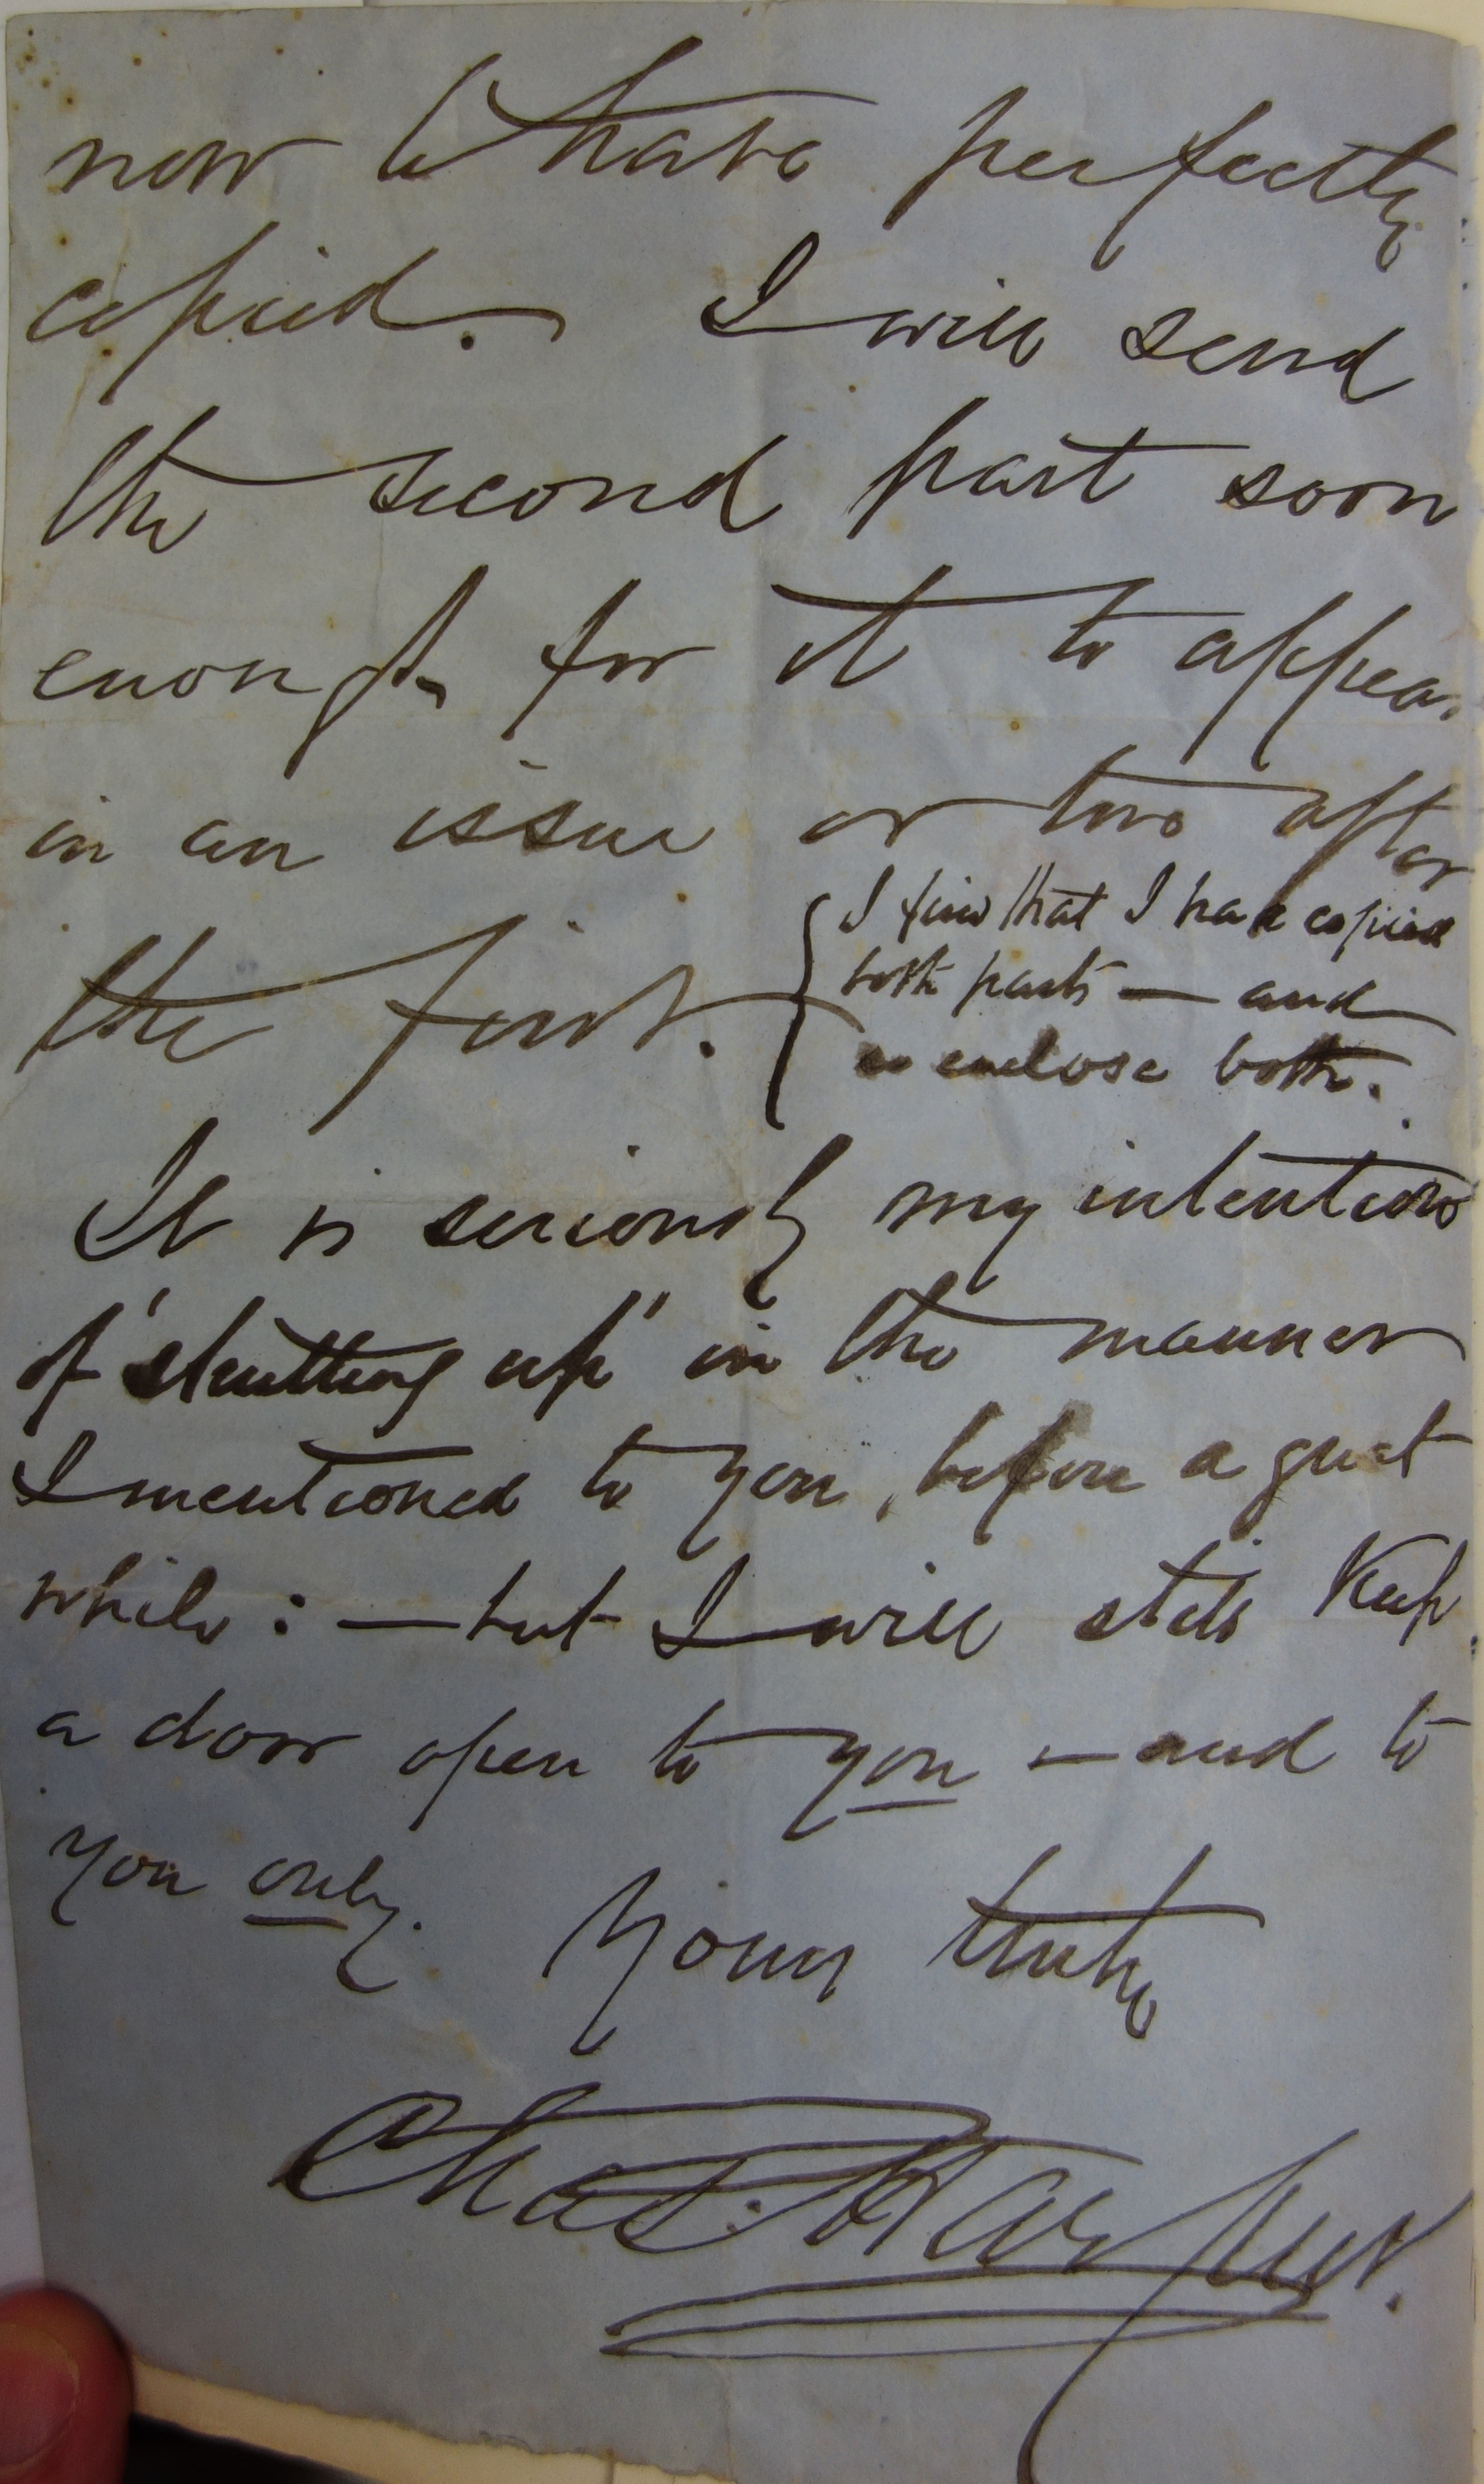 now to have perfectly
copied. I will send
the second part soon
enough for it to appear
in an issue or two after
the first.
{ I find that I have copied
both parts — and
so enclose both.
It is seriously my intention
of 'shutting up' in the manner
I mentioned to you, before a great
while: — but I will still keep
a door open to you — and to
you only.
Yours truly
Chas. Harpur.